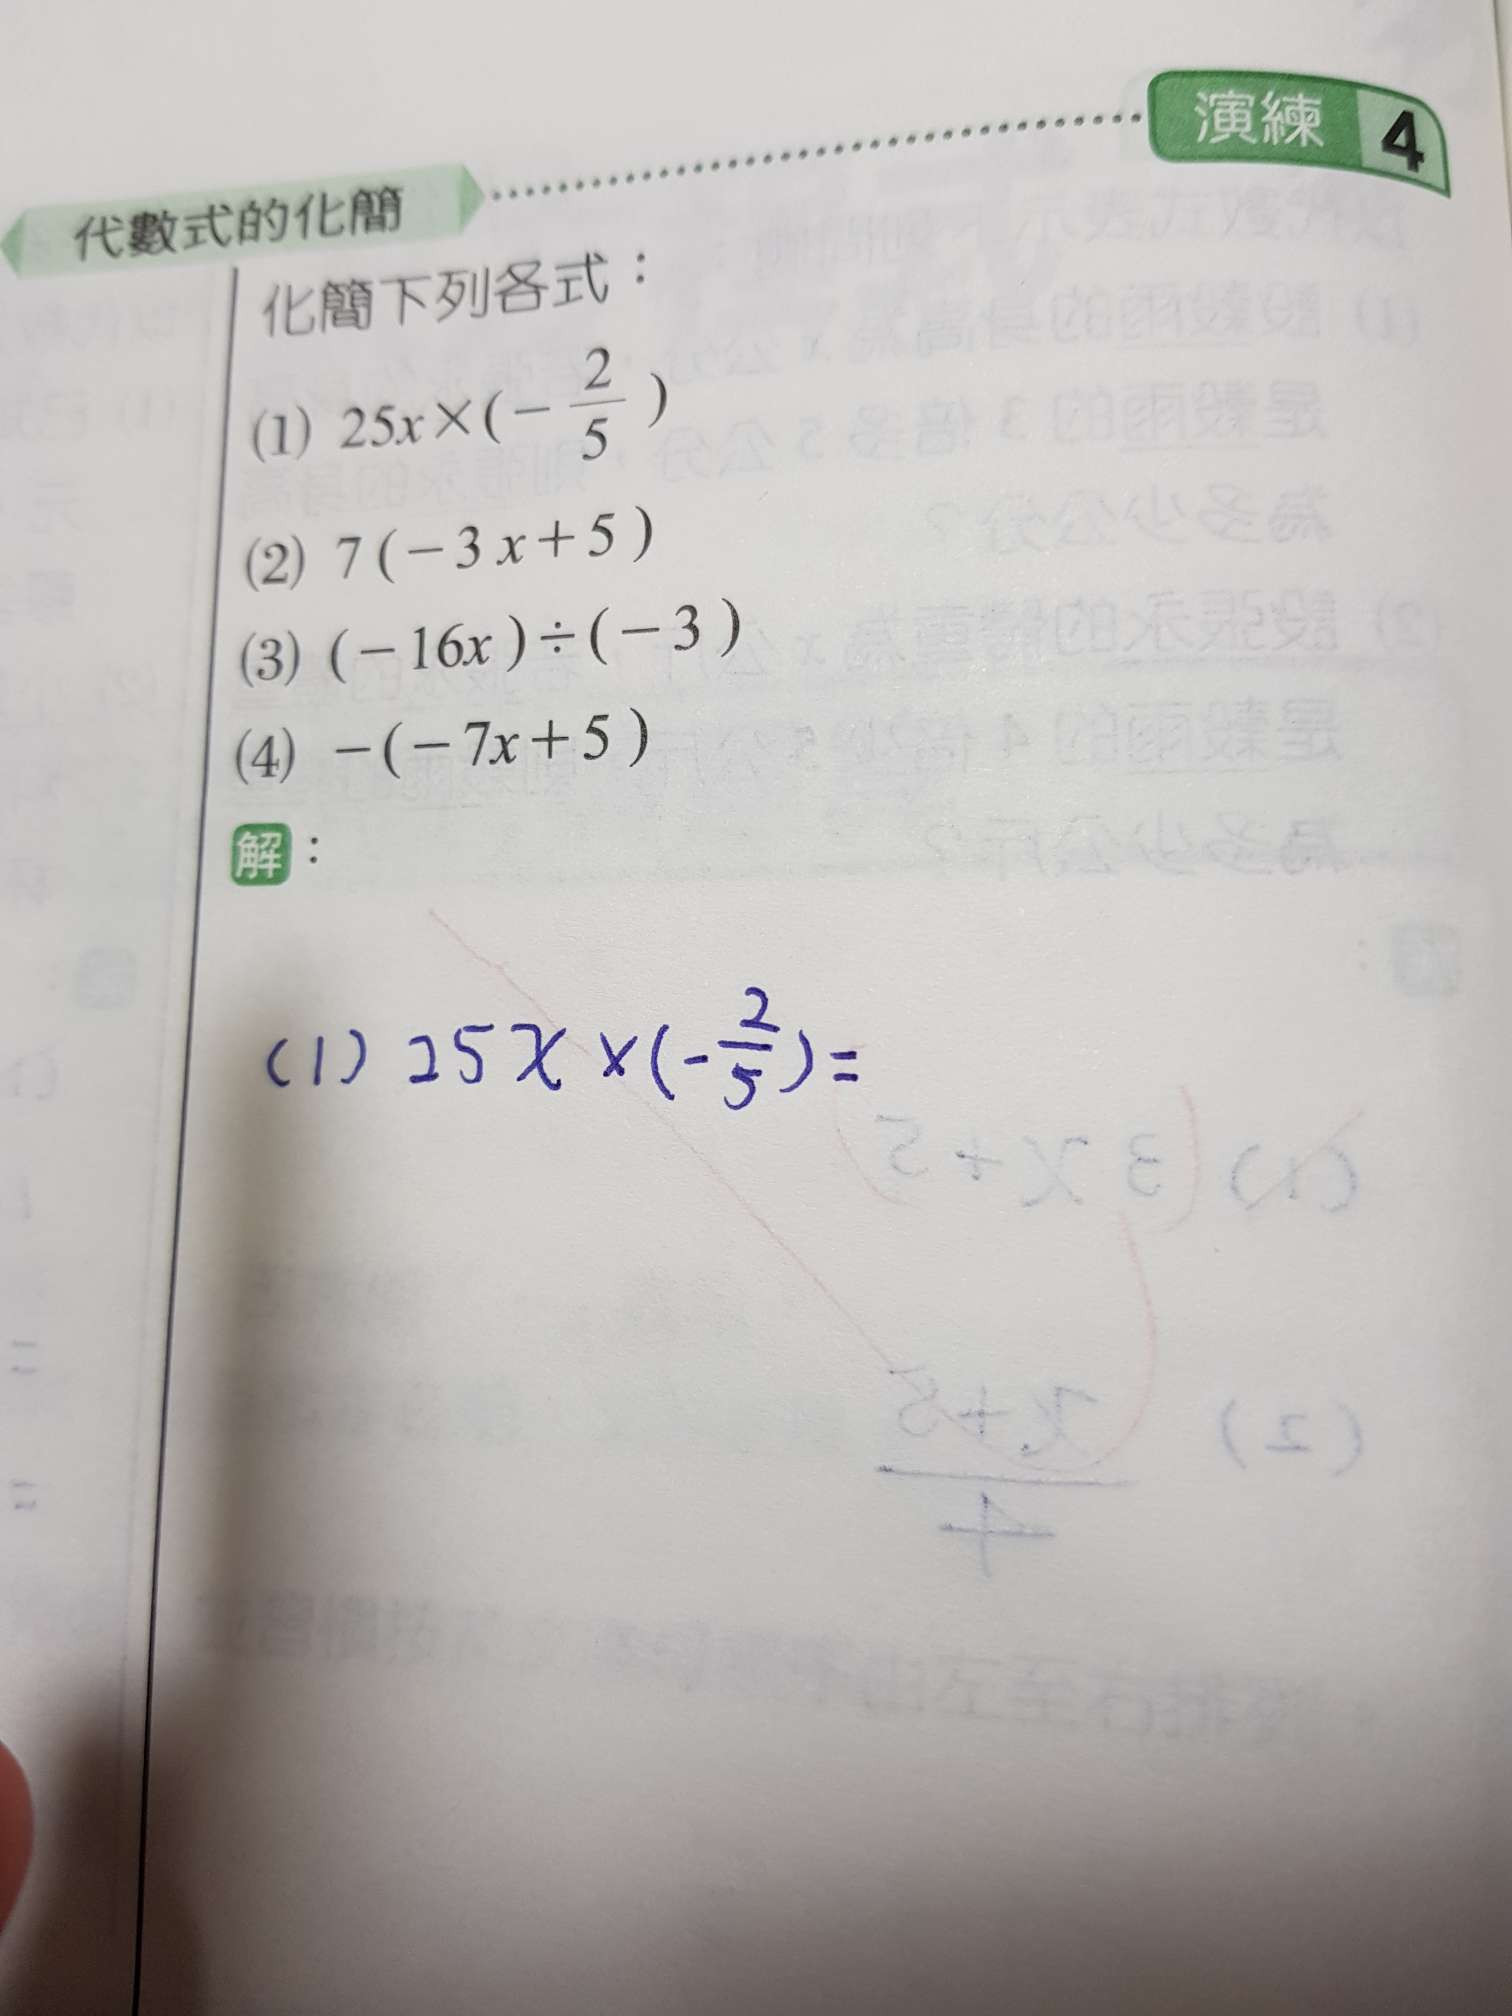 演練 4
代數式的化簡
化簡下列各式：
(1) 25x×(－2/5)
(2) 7(－3x＋5)
(3) (－16x)÷(－3)
(4) －(－7x＋5)
解：
(1) 25x×(-2/5)=